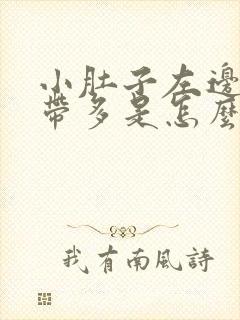 小肚子左邊
帶多是怎麼
我有南風詩